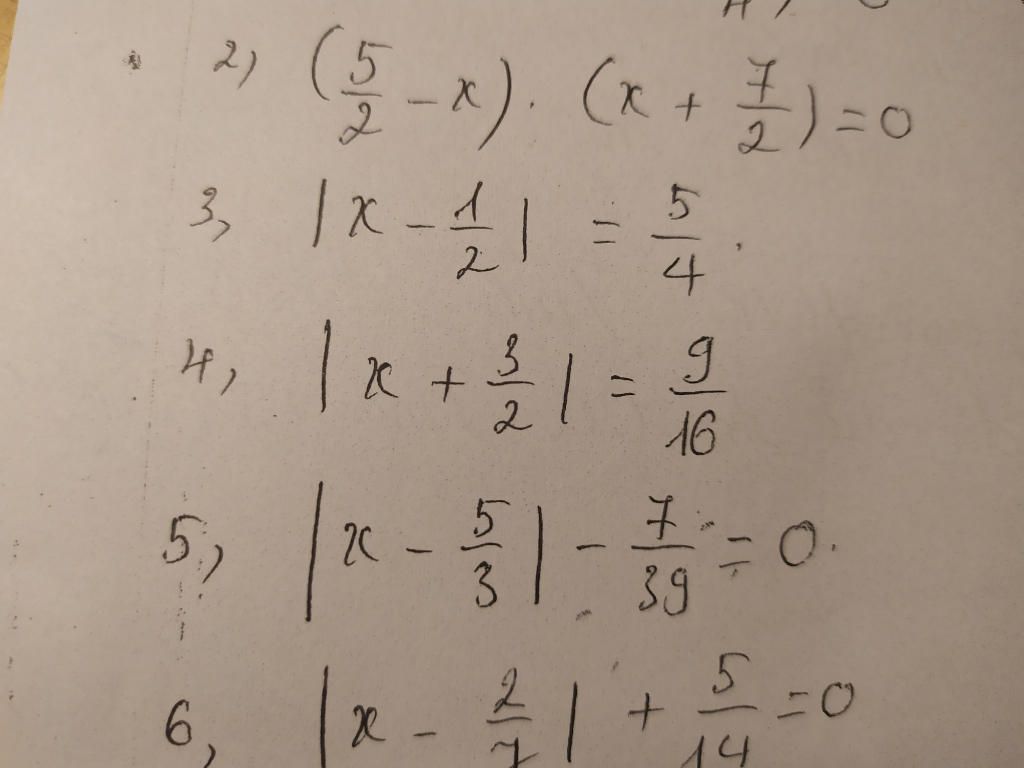 2) (5/2 - x) . (x + 7/2) = 0
3, |x - 1/2| = 5/4 .
4, |x + 3/2| = 9/16
5, |x - 5/3| - 7/39 = 0.
6, |x - 2/7| + 5/14 = 0